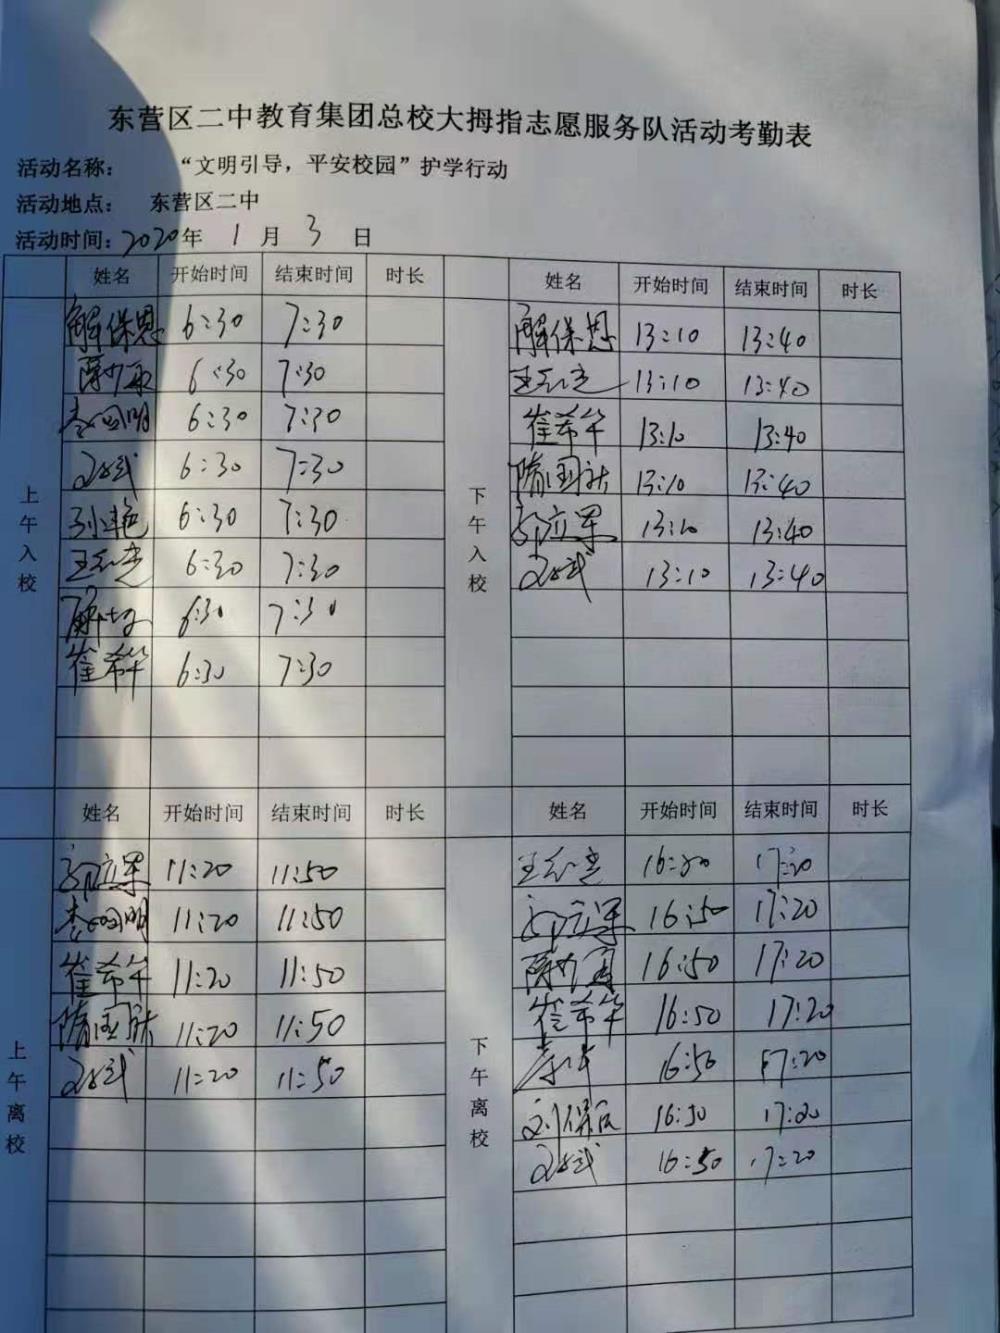 东营区二中教育集团总校大拇指志愿服务队活动考勤表
活动名称： “文明引导，平安校园”护学行动
活动地点： 东营区二中
活动时间：2020年 1 月 3 日
姓名 开始时间 结束时间 时长 姓名 开始时间 结束时间 时长
上午入校
解保恩 6:30 7:30
6:30 7:30
李国明 6:30 7:30
6:30 7:30
孙艳 6:30 7:30
6:30 7:30
6:30 7:30
崔希华 6:30 7:30
下午入校
解保恩 13:10 13:40
13:10 13:40
崔希华 13:10 13:40
隋国 13:10 13:40
13:10 13:40
13:10 13:40
姓名 开始时间 结束时间 时长 姓名 开始时间 结束时间 时长
上午离校
11:20 11:50
李国明 11:20 11:50
崔希华 11:20 11:50
隋国 11:20 11:50
11:20 11:50
下午离校
16:50 17:20
16:50 17:20
16:50 17:20
崔希华 16:50 17:20
16:50 17:20
刘保 16:50 17:20
16:50 17:20